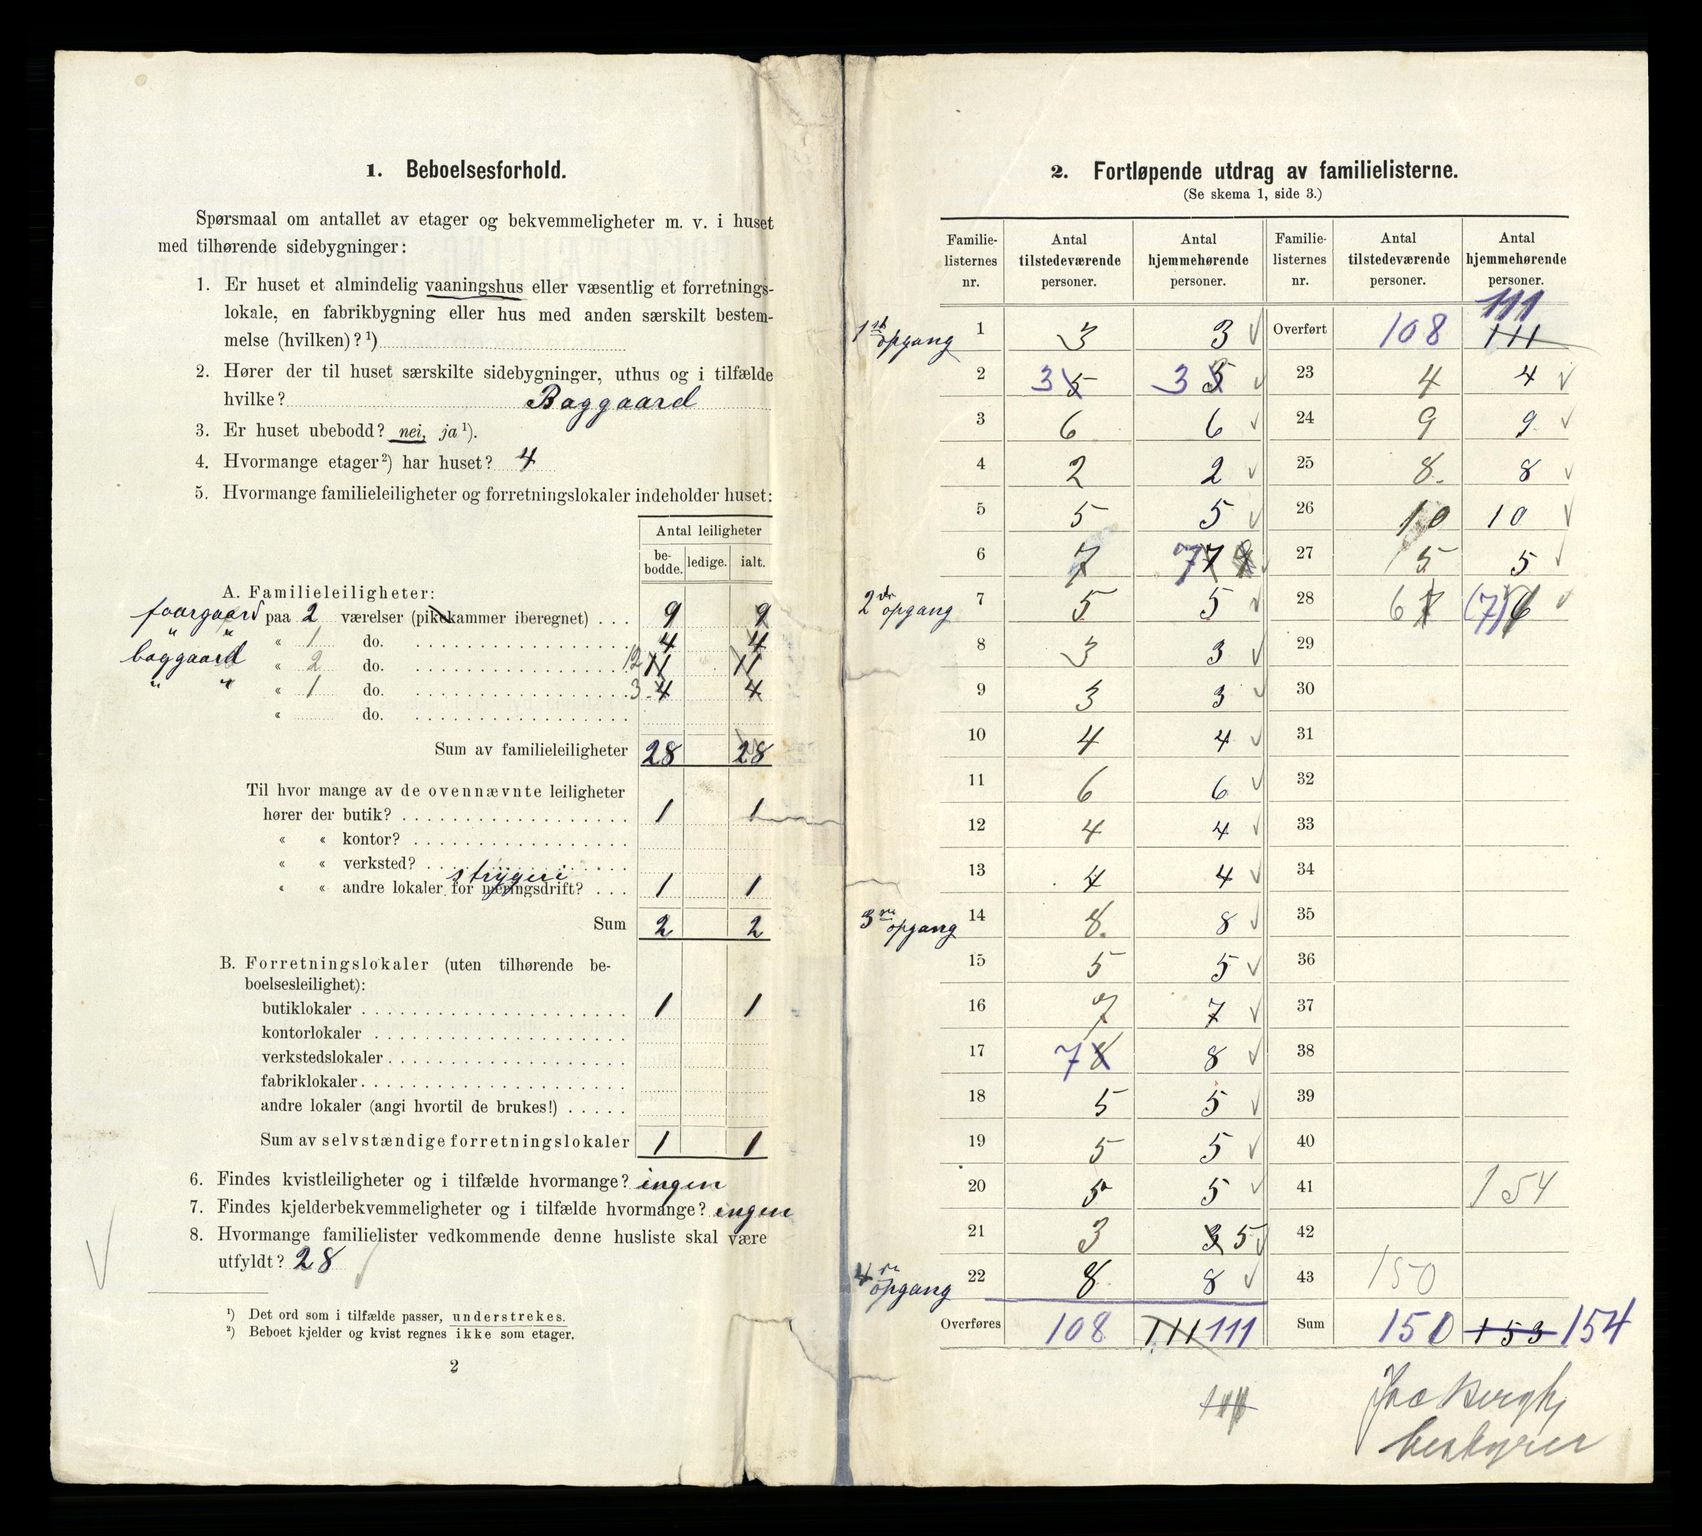 1. Beboelsesforhold.
Spørsmaal om antallet av etager og bekvemmeligheter m. v. i huset
med tilhørende sidebygninger:
1. Er huset et almindelig vaaningshus eller væsentlig et forretnings-
lokale, en fabrikbygning eller hus med anden særskilt bestem-
melse (hvilken)? ¹)
2. Hører der til huset særskilte sidebygninger, uthus og i tilfælde
hvilke? Baggaard
3. Er huset ubebodd? nei, ja ¹).
4. Hvormange etager ²) har huset? 4
5. Hvormange familieleiligheter og forretningslokaler indeholder huset:
Antal leiligheter
be-bodde. ledige. ialt.
A. Familieleiligheter:
foorgaard paa 2 værelser (pikekammer iberegnet) . . . 9 9
" " « 1 do. 4 4
baggaard « 2 do. 12 11 11
" " « 1 do. 3 4 4
« do.
Sum av familieleiligheter 28 28
Til hvor mange av de ovennævnte leiligheter
hører der butik? 1 1
« « kontor?
« « verksted?
strygeri
« « andre lokaler for næringsdrift? . . . 1 1
Sum 2 2
B. Forretningslokaler (uten tilhørende be-
boelsesleilighet):
butiklokaler 1 1
kontorlokaler
verkstedslokaler
fabriklokaler
andre lokaler (angi hvortil de brukes!)
Sum av selvstændige forretningslokaler 1 1
6. Findes kvistleiligheter og i tilfælde hvormange? ingen
7. Findes kjelderbekvemmeligheter og i tilfælde hvormange? ingen
8. Hvormange familielister vedkommende denne husliste skal være
utfyldt? 28
¹) Det ord som i tilfælde passer, understrekes.
²) Beboet kjelder og kvist regnes ikke som etager.
2
2. Fortløpende utdrag av familielisterne.
(Se skema 1, side 3.)
Familie-listernes nr. Antal tilstedeværende personer. Antal hjemmehørende personer. Familie-listernes nr. Antal tilstedeværende personer. Antal hjemmehørende personer.
111
1ste opgang 1 3 3 Overført 108 111
2 3 5 3 5 23 4 4
3 6 6 24 9 9
4 2 2 25 8. 8
5 5 5 26 10 10
6 7 7 7 27 5 5
2den opgang 7 5 5 28 6 7 (7) 6
8 3 3 29
9 3 3 30
10 4 4 31
11 6 6 32
12 4 4 33
13 4 4 34
3die opgang 14 8. 8 35
15 5 5 36
16 7 7 37
17 7 8 8 38
18 5 5 39
19 5 5 40
20 5 5 41 154
21 3 3 5 42
4de opgang 22 8 8 43 150
Overføres 108 111 111 Sum 150 153 154
bestyrer